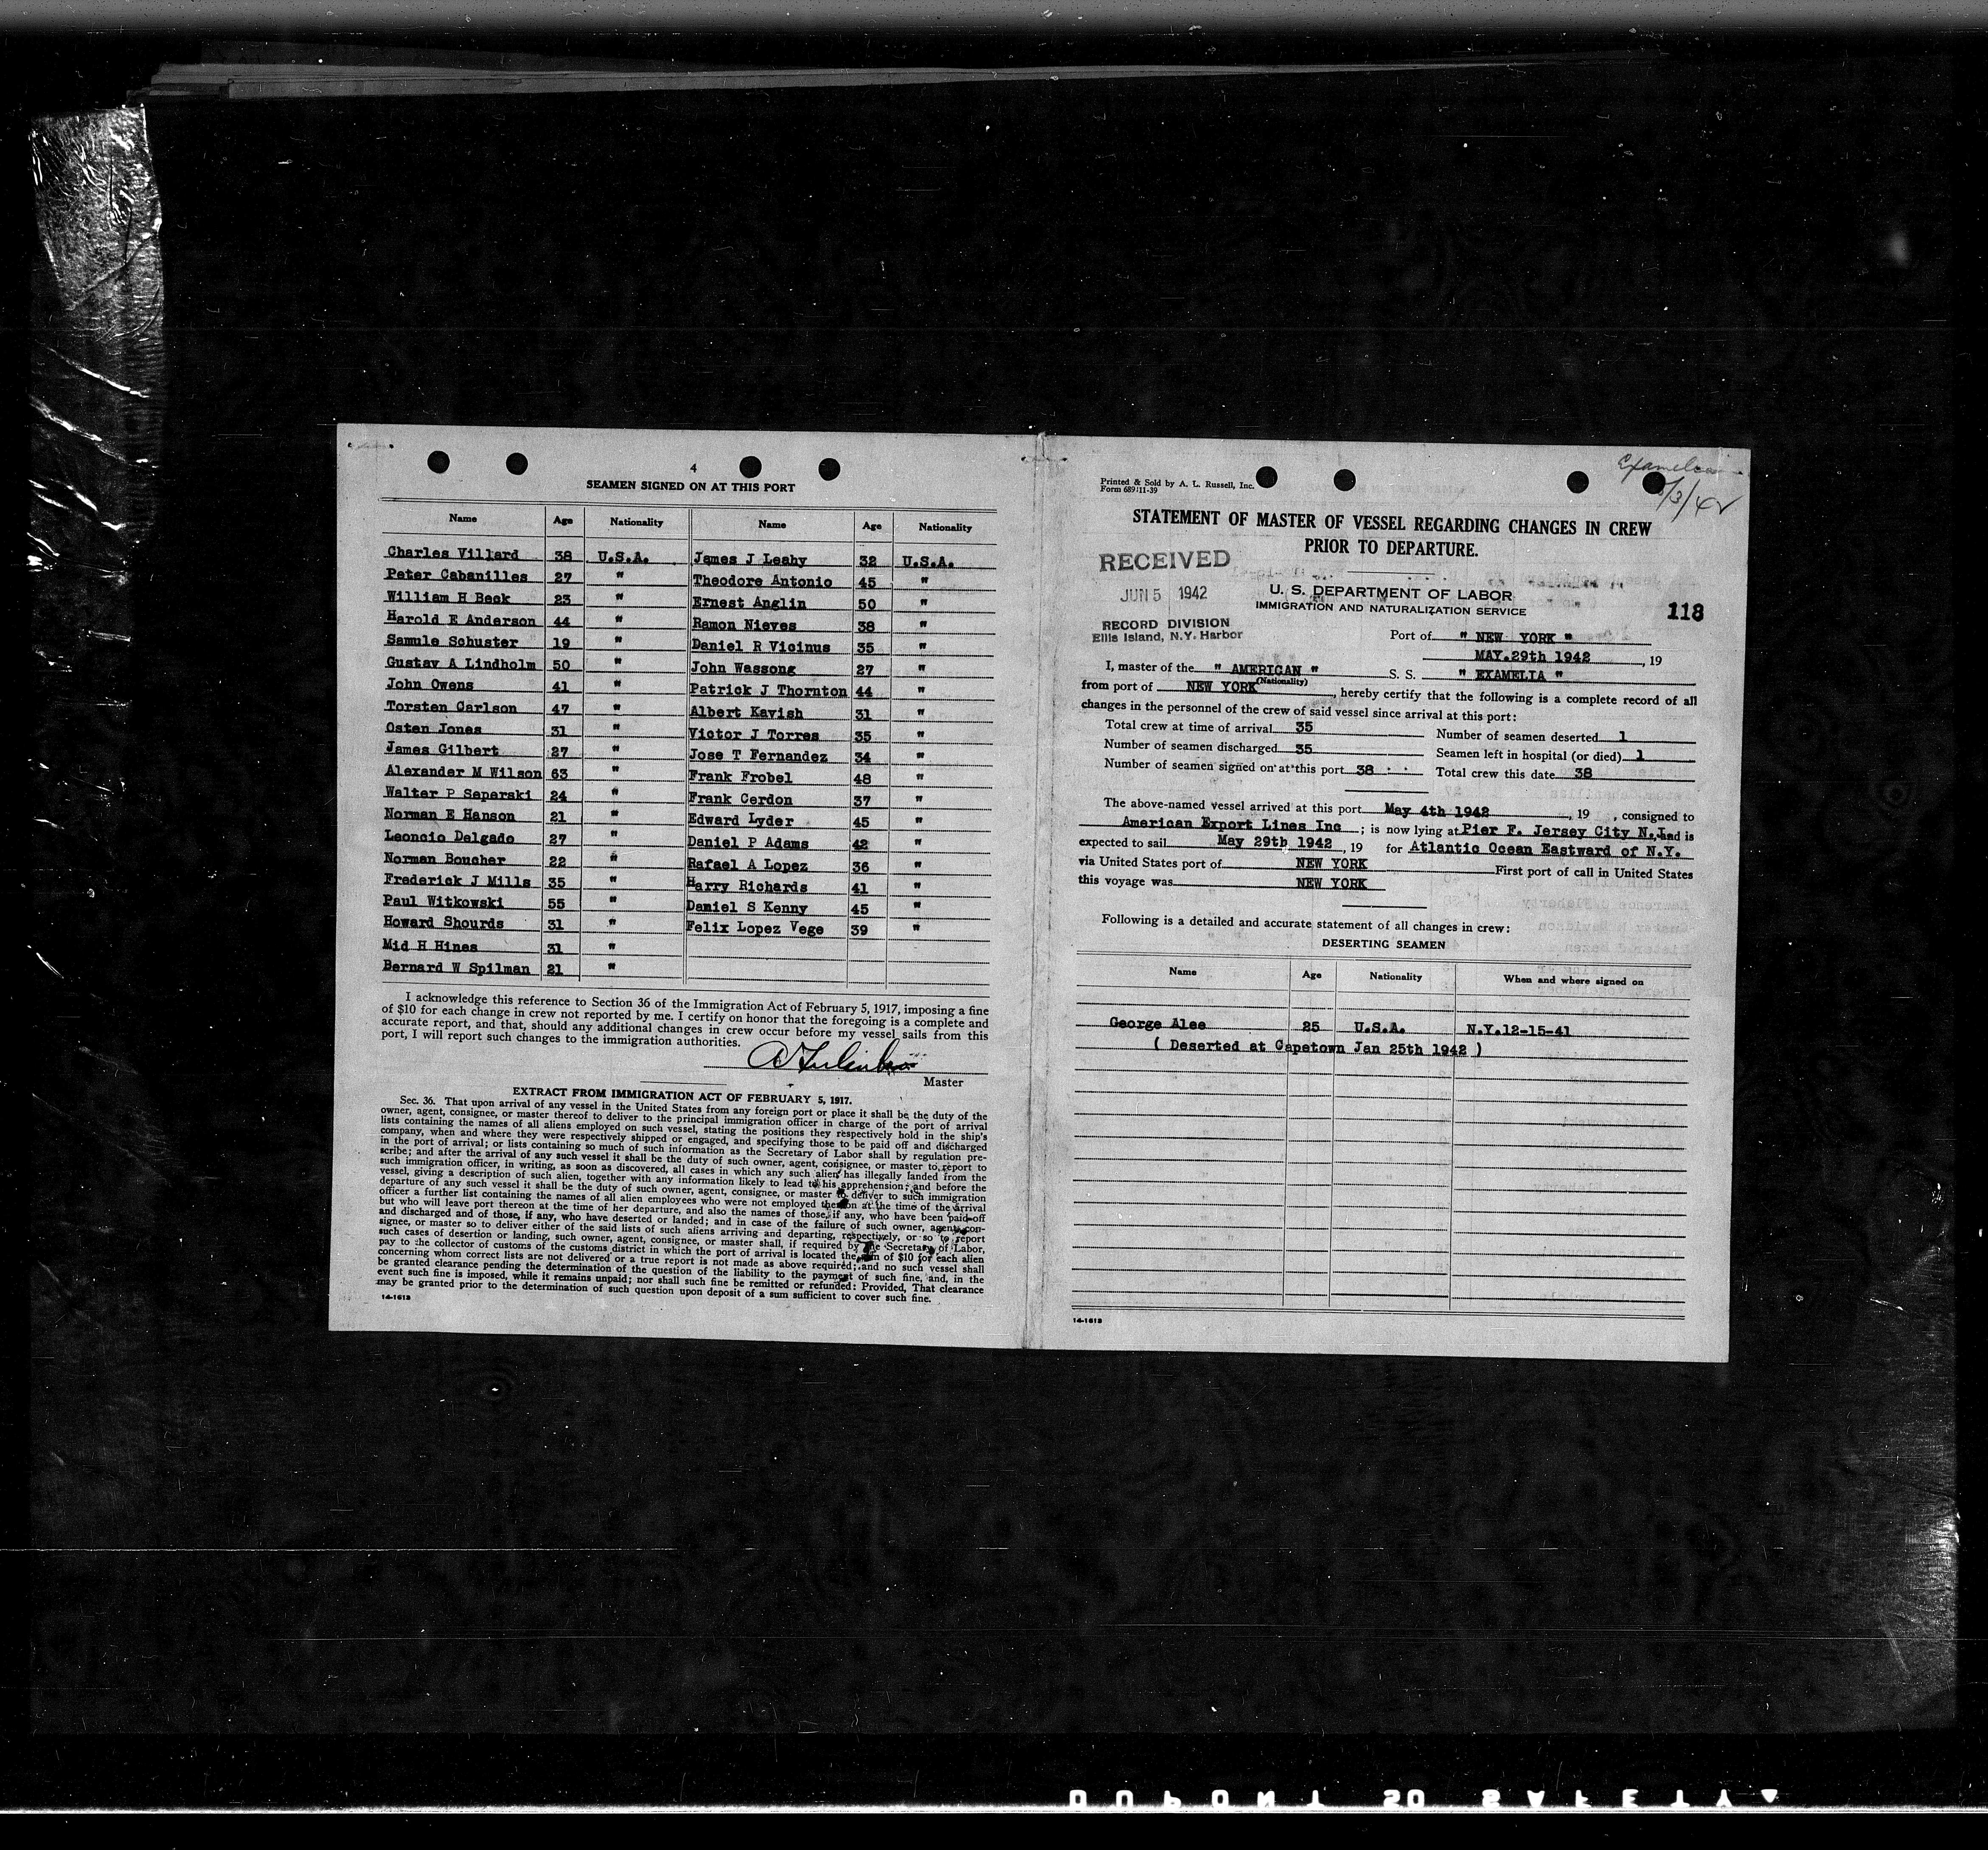 4
SEAMEN SIGNED ON AT THIS PORT
Name Age Nationality Name Age Nationality
Charles Villard 38 U.S.A. James J Leahy 32 U.S.A.
Peter Cabanilles 27 " Theodore Antonio 45 "
William H Beck 23 " Ernest Anglin 50 "
Harold E Anderson 44 " Ramon Nieves 38 "
Samule Schuster 19 " Daniel R Vicinus 35 "
Gustav A Lindholm 50 " John Wassong 27 "
John Owens 41 " Patrick J Thornton 44 "
Torsten Carlson 47 " Albert Kavish 31 "
Osten Jones 31 " Victor J Torres 35 "
James Gilbert 27 " Jose T Fernandez 34 "
Alexander M Wilson 63 " Frank Frobel 48 "
Walter P Saparski 24 " Frank Cerdon 37 "
Norman E Hanson 21 " Edward Lyder 45 "
Leoncio Delgado 27 " Daniel P Adams 42 "
Norman Boucher 22 " Rafael A Lopez 36 "
Frederick J Mills 35 " Harry Richards 41 "
Paul Witkowski 55 " Daniel S Kenny 45 "
Howard Shourds 31 " Felix Lopez Vege 39 "
Mid H Hines 31 "
Bernard W Spilman 21 "
I acknowledge this reference to Section 36 of the Immigration Act of February 5, 1917, imposing a fine
of $10 for each change in crew not reported by me. I certify on honor that the foregoing is a complete and
accurate report, and that, should any additional changes in crew occur before my vessel sails from this
port, I will report such changes to the immigration authorities.
Master
EXTRACT FROM IMMIGRATION ACT OF FEBRUARY 5, 1917.
Sec. 36. That upon arrival of any vessel in the United States from any foreign port or place it shall be the duty of the
owner, agent, consignee, or master thereof to deliver to the principal immigration officer in charge of the port of arrival
lists containing the names of all aliens employed on such vessel, stating the positions they respectively hold in the ship's
company, when and where they were respectively shipped or engaged, and specifying those to be paid off and discharged
in the port of arrival; or lists containing so much of such information as the Secretary of Labor shall by regulation pre-
scribe; and after the arrival of any such vessel it shall be the duty of such owner, agent, consignee, or master to report to
such immigration officer, in writing, as soon as discovered, all cases in which any such alien has illegally landed from the
vessel, giving a description of such alien, together with any information likely to lead to his apprehension; and before the
departure of any such vessel it shall be the duty of such owner, agent, consignee, or master to deliver to such immigration
officer a further list containing the names of all alien employees who were not employed thereon at the time of the arrival
but who will leave port thereon at the time of her departure, and also the names of those, if any, who have been paid off
and discharged and of those, if any, who have deserted or landed; and in case of the failure of such owner, agent, con-
signee, or master so to deliver either of the said lists of such aliens arriving and departing, respectively, or so to report
such cases of desertion or landing, such owner, agent, consignee, or master shall, if required by the Secretary of Labor,
pay to the collector of customs of the customs district in which the port of arrival is located the sum of $10 for each alien
concerning whom correct lists are not delivered or a true report is not made as above required; and no such vessel shall
be granted clearance pending the determination of the question of the liability to the payment of such fine, and, in the
event such fine is imposed, while it remains unpaid; nor shall such fine be remitted or refunded: Provided, That clearance
may be granted prior to the determination of such question upon deposit of a sum sufficient to cover such fine.
14-1613
Examelia
6/3/42
Printed & Sold by A. L. Russell, Inc.
Form 689:11-39
STATEMENT OF MASTER OF VESSEL REGARDING CHANGES IN CREW
PRIOR TO DEPARTURE.
RECEIVED
JUN 5 1942
RECORD DIVISION
Ellis Island, N.Y. Harbor
U. S. DEPARTMENT OF LABOR
IMMIGRATION AND NATURALIZATION SERVICE
118
Port of " NEW YORK "
MAY.29th 1942, 19
I, master of the " AMERICAN " S. S. " EXAMELIA "
(Nationality)
from port of NEW YORK, hereby certify that the following is a complete record of all
changes in the personnel of the crew of said vessel since arrival at this port:
Total crew at time of arrival 35 Number of seamen deserted 1
Number of seamen discharged 35 Seamen left in hospital (or died) 1
Number of seamen signed on at this port 38 Total crew this date 38
The above-named vessel arrived at this port May 4th 1942, 19 , consigned to
American Export Lines Inc; is now lying at Pier F. Jersey City N.J. and is
expected to sail May 29th 1942, 19 for Atlantic Ocean Eastward of N.Y.
via United States port of NEW YORK First port of call in United States
this voyage was NEW YORK
Following is a detailed and accurate statement of all changes in crew:
DESERTING SEAMEN
Name Age Nationality When and where signed on
George Alee 25 U.S.A. N.Y.12-15-41
( Deserted at Capetown Jan 25th 1942 )
14-1613